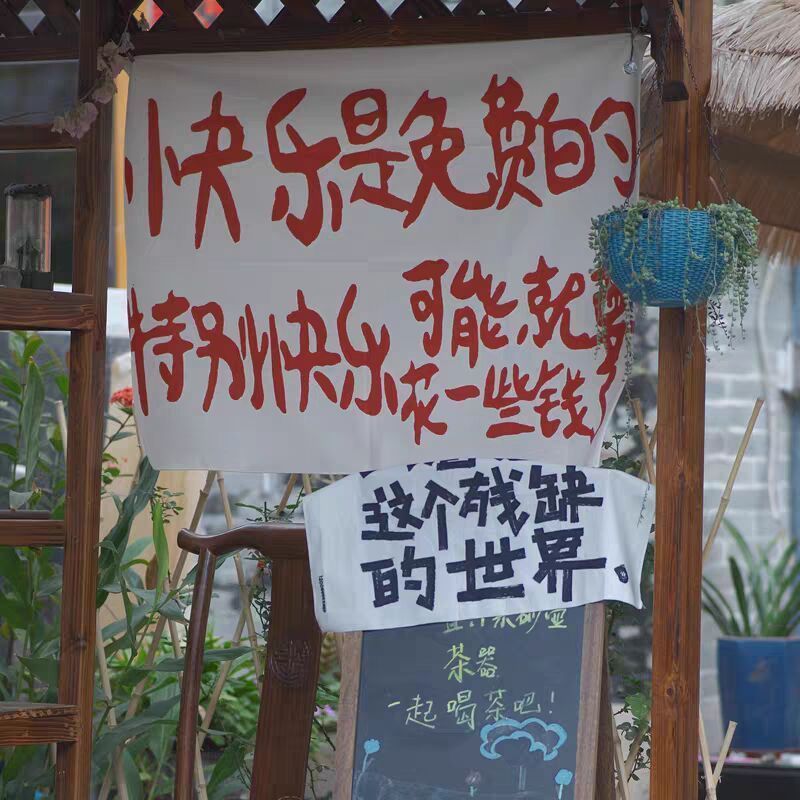 快乐是免费的
特别快乐可能就要
花一些钱
这个残缺
的世界
茶器
一起喝茶吧！